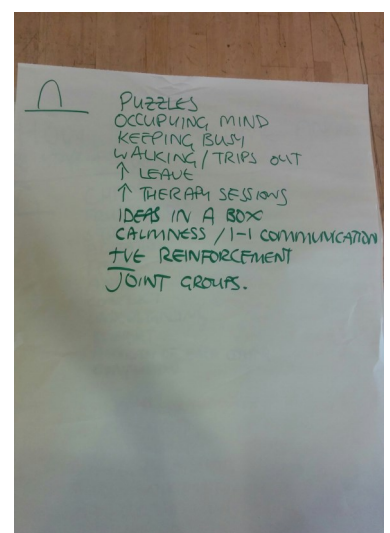 PUZZLES
OCCUPYING MIND
KEEPING BUSY
WALKING / TRIPS OUT
↑ LEAVE
↑ THERAPY SESSIONS
IDEAS IN A BOX
CALMNESS / 1-1 COMMUNICATION
+VE REINFORCEMENT
JOINT GROUPS.